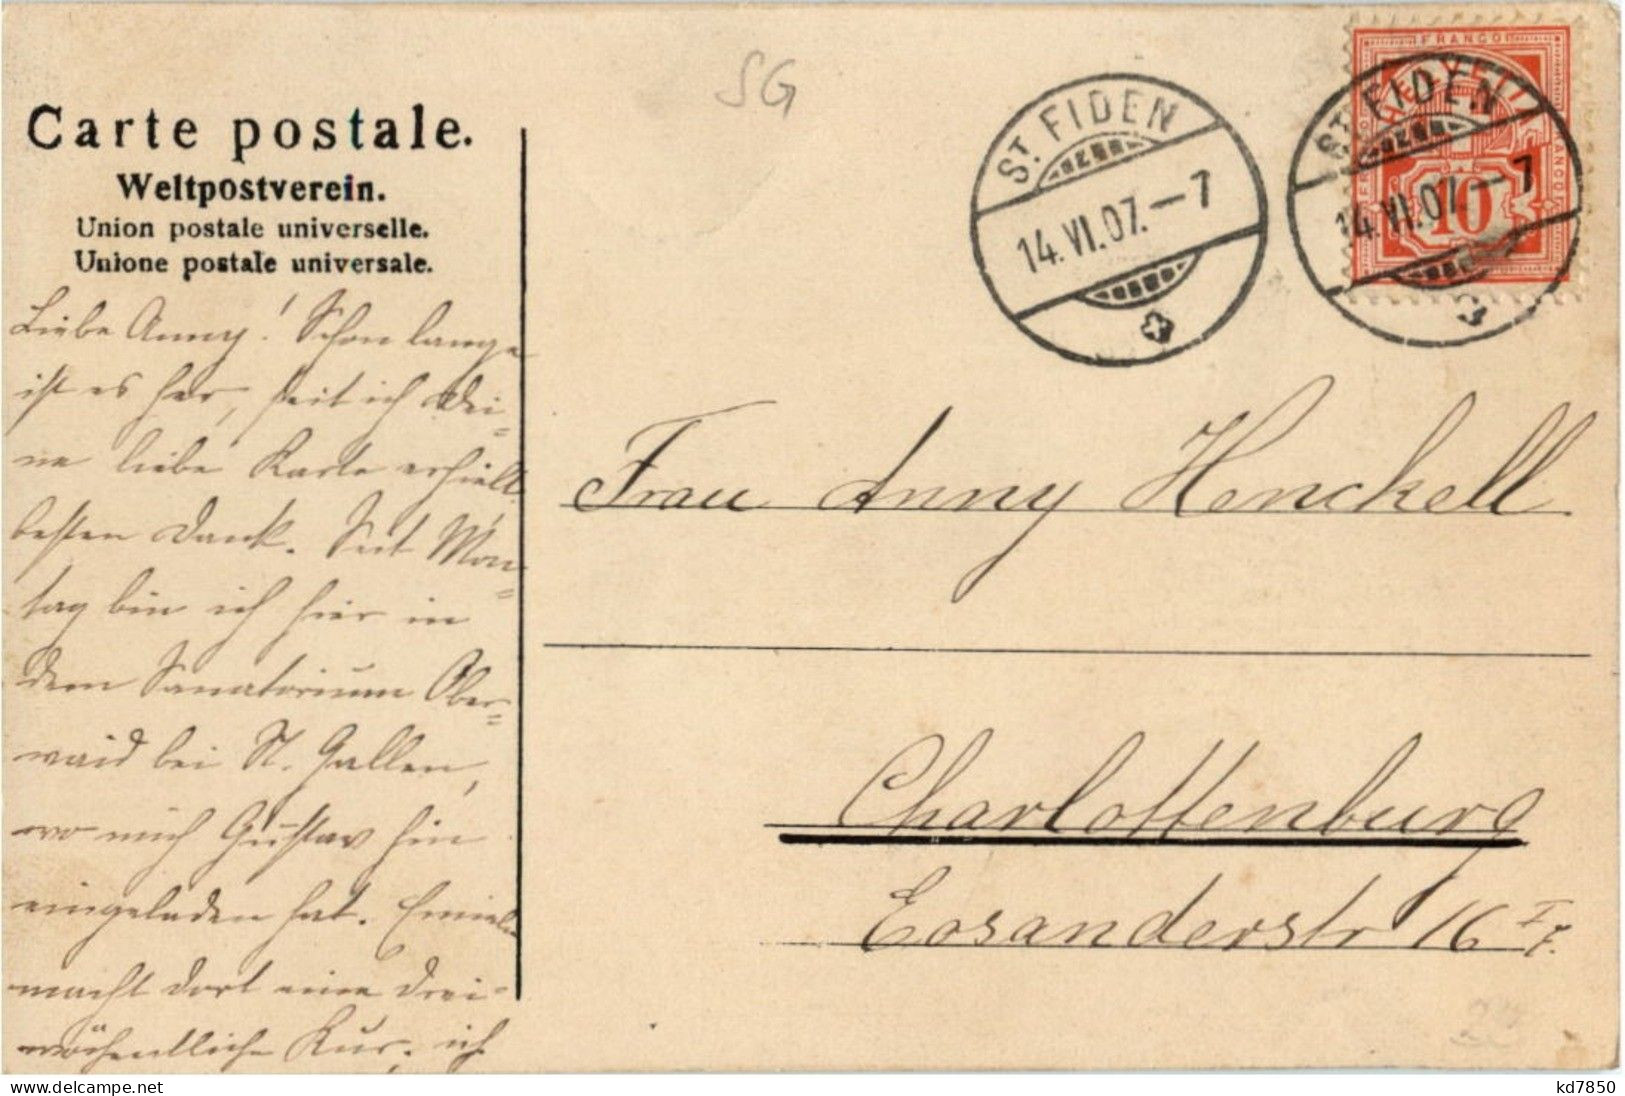 SG
Carte postale.
Weltpostverein.
Union postale universelle.
Unione postale universale.
ST. FIDEN
14.VI.07.–7
FRANCO
HELVETIA
10
ST. FIDEN
14.VI.07–7
Liebe Anny! Schon lange
ist es her, seit ich Dei=
ne liebe Karte erhielt
besten Dank. Seit Mon=
tag bin ich hier in
dem Sanatorium Ober=
waid bei St. Gallen,
wo mich Gustav hin
eingeladen hat.
macht dort eine drei=
wöchentliche Kur, ich
Frau Anny Henckell
Charlottenburg
Eosanderstr 16 I
kd7850